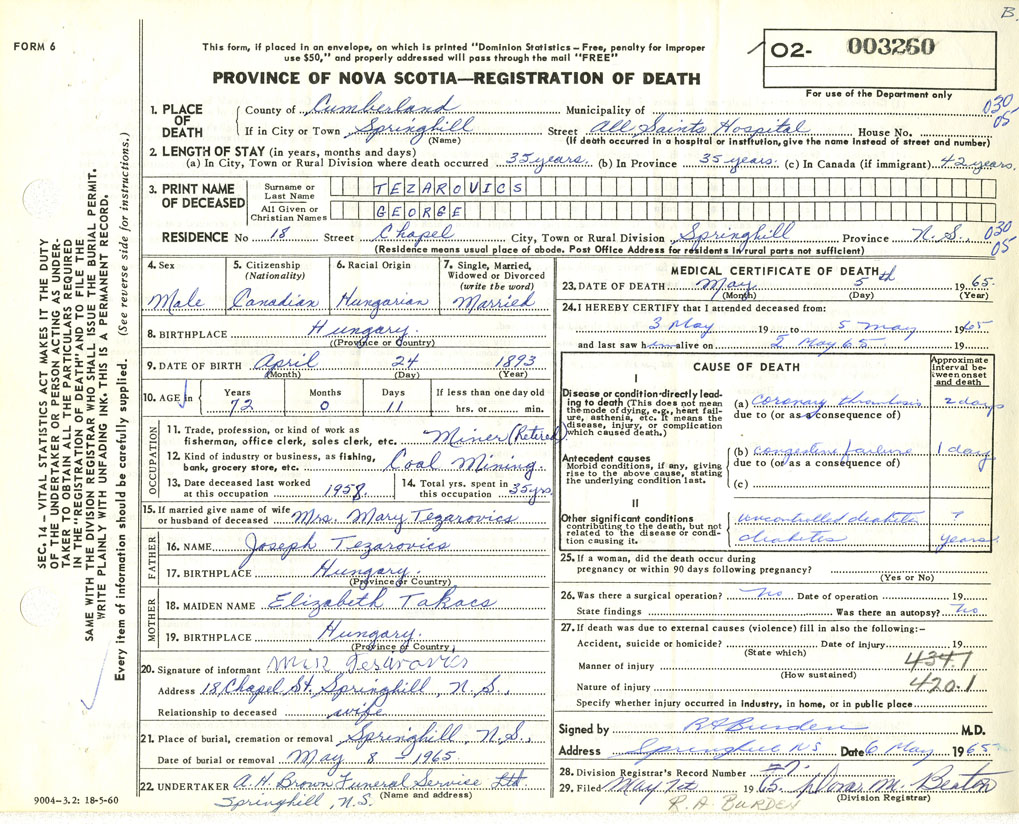 B.
FORM 6
This form, if placed in an envelope, on which is printed "Dominion Statistics – Free, penalty for improper
use $50," and properly addressed will pass through the mail "FREE"
PROVINCE OF NOVA SCOTIA—REGISTRATION OF DEATH
02- 003260
For use of the Department only
1. PLACE OF DEATH
County of Cumberland Municipality of
030
05
If in City or Town Springhill Street All Saints Hospital House No.
(Name) (If death occurred in a hospital or institution, give the name instead of street and number)
2. LENGTH OF STAY (in years, months and days)
(a) In City, Town or Rural Division where death occurred 35 years. (b) In Province 35 years. (c) In Canada (if immigrant) 42 years.
3. PRINT NAME OF DECEASED
Surname or Last Name TEZAROVICS
All Given or Christian Names GEORGE
RESIDENCE No 18 Street Chapel City, Town or Rural Division Springhill Province N.S.
030
05
(Residence means usual place of abode. Post Office Address for residents in rural parts not sufficient)
4. Sex
Male
5. Citizenship
(Nationality)
Canadian
6. Racial Origin
Hungarian
7. Single, Married, Widowed or Divorced
(write the word)
Married
8. BIRTHPLACE Hungary.
(Province or Country)
9. DATE OF BIRTH April 24 1893
(Month) (Day) (Year)
10. AGE in
Years Months Days If less than one day old
72 0 11 hrs. or min.
OCCUPATION
11. Trade, profession, or kind of work as
fisherman, office clerk, sales clerk, etc. Miner (Retered)
12. Kind of industry or business, as fishing,
bank, grocery store, etc. Coal Mining.
13. Date deceased last worked
at this occupation 1958.
14. Total yrs. spent in
this occupation 35yrs.
15. If married give name of wife
or husband of deceased Mrs. Mary Tezarovics
FATHER
16. NAME Joseph Tezarovics
17. BIRTHPLACE Hungary.
(Province or Country)
MOTHER
18. MAIDEN NAME Elizabeth Takacs
19. BIRTHPLACE Hungary.
(Province of Country)
20. Signature of informant
Address 18 Chapel St. Springhill, N.S.,
Relationship to deceased wife
21. Place of burial, cremation or removal Springhill, N.S.,
Date of burial or removal May 8 1965
22. UNDERTAKER A.H. Brown Funeral Service Ltd.
(Name and address)
Springhill, N.S.
9004–3.2: 18-5-60
MEDICAL CERTIFICATE OF DEATH
23. DATE OF DEATH May 5th 1965.
(Month) (Day) (Year)
24. I HEREBY CERTIFY that I attended deceased from:
3 May 19 to 5 May 1965
and last saw him alive on 5 May 65 19
CAUSE OF DEATH
Approximate interval between onset and death
I
Disease or condition directly leading to death (This does not mean the mode of dying, e.g., heart failure, asthenia, etc. It means the disease, injury, or complication which caused death.)
(a) coronary thrombosis 2 days
due to (or as a consequence of)
Antecedent causes
Morbid conditions, if any, giving rise to the above cause, stating the underlying condition last.
(b) congestive failure 1 day
due to (or as a consequence of)
(c)
II
Other significant conditions
contributing to the death, but not related to the disease or condition causing it.
uncontrolled diabetes ?
diabetes years.
25. If a woman, did the death occur during
pregnancy or within 90 days following pregnancy?
(Yes or No)
26. Was there a surgical operation? no Date of operation 19
State findings Was there an autopsy? no
27. If death was due to external causes (violence) fill in also the following:–
Accident, suicide or homicide? Date of injury 19
(State which)
Manner of injury 434.1
(How sustained)
Nature of injury 420.1
Specify whether injury occurred in industry, in home, or in public place
Signed by R A Burden M.D.
Address Springhill NS Date 6 May 1965
28. Division Registrar's Record Number
29. Filed May 7th 1965. M. Beaton
(Division Registrar)
R. A BURDEN
SEC. 14 – VITAL STATISTICS ACT MAKES IT THE DUTY
OF THE UNDERTAKER OR PERSON ACTING AS UNDER-
TAKER TO OBTAIN ALL THE PARTICULARS REQUIRED
IN THE "REGISTRATION OF DEATH" AND TO FILE THE
SAME WITH THE DIVISION REGISTRAR WHO SHALL ISSUE THE BURIAL PERMIT.
WRITE PLAINLY WITH UNFADING INK. THIS IS A PERMANENT RECORD.
Every item of information should be carefully supplied. (See reverse side for instructions.)